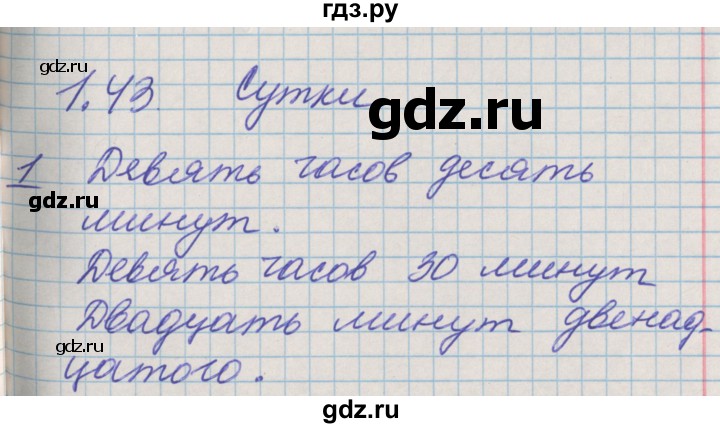 гдз.ру
gdz.ru
gdz.ru
1.43. Сутки
gdz.ru
1 Девять часов десять
минут.
Девять часов 30 минут
Двадцать минут двенад-
цатого.
gdz.ru
gdz.ru
gdz.ru
gdz.ru